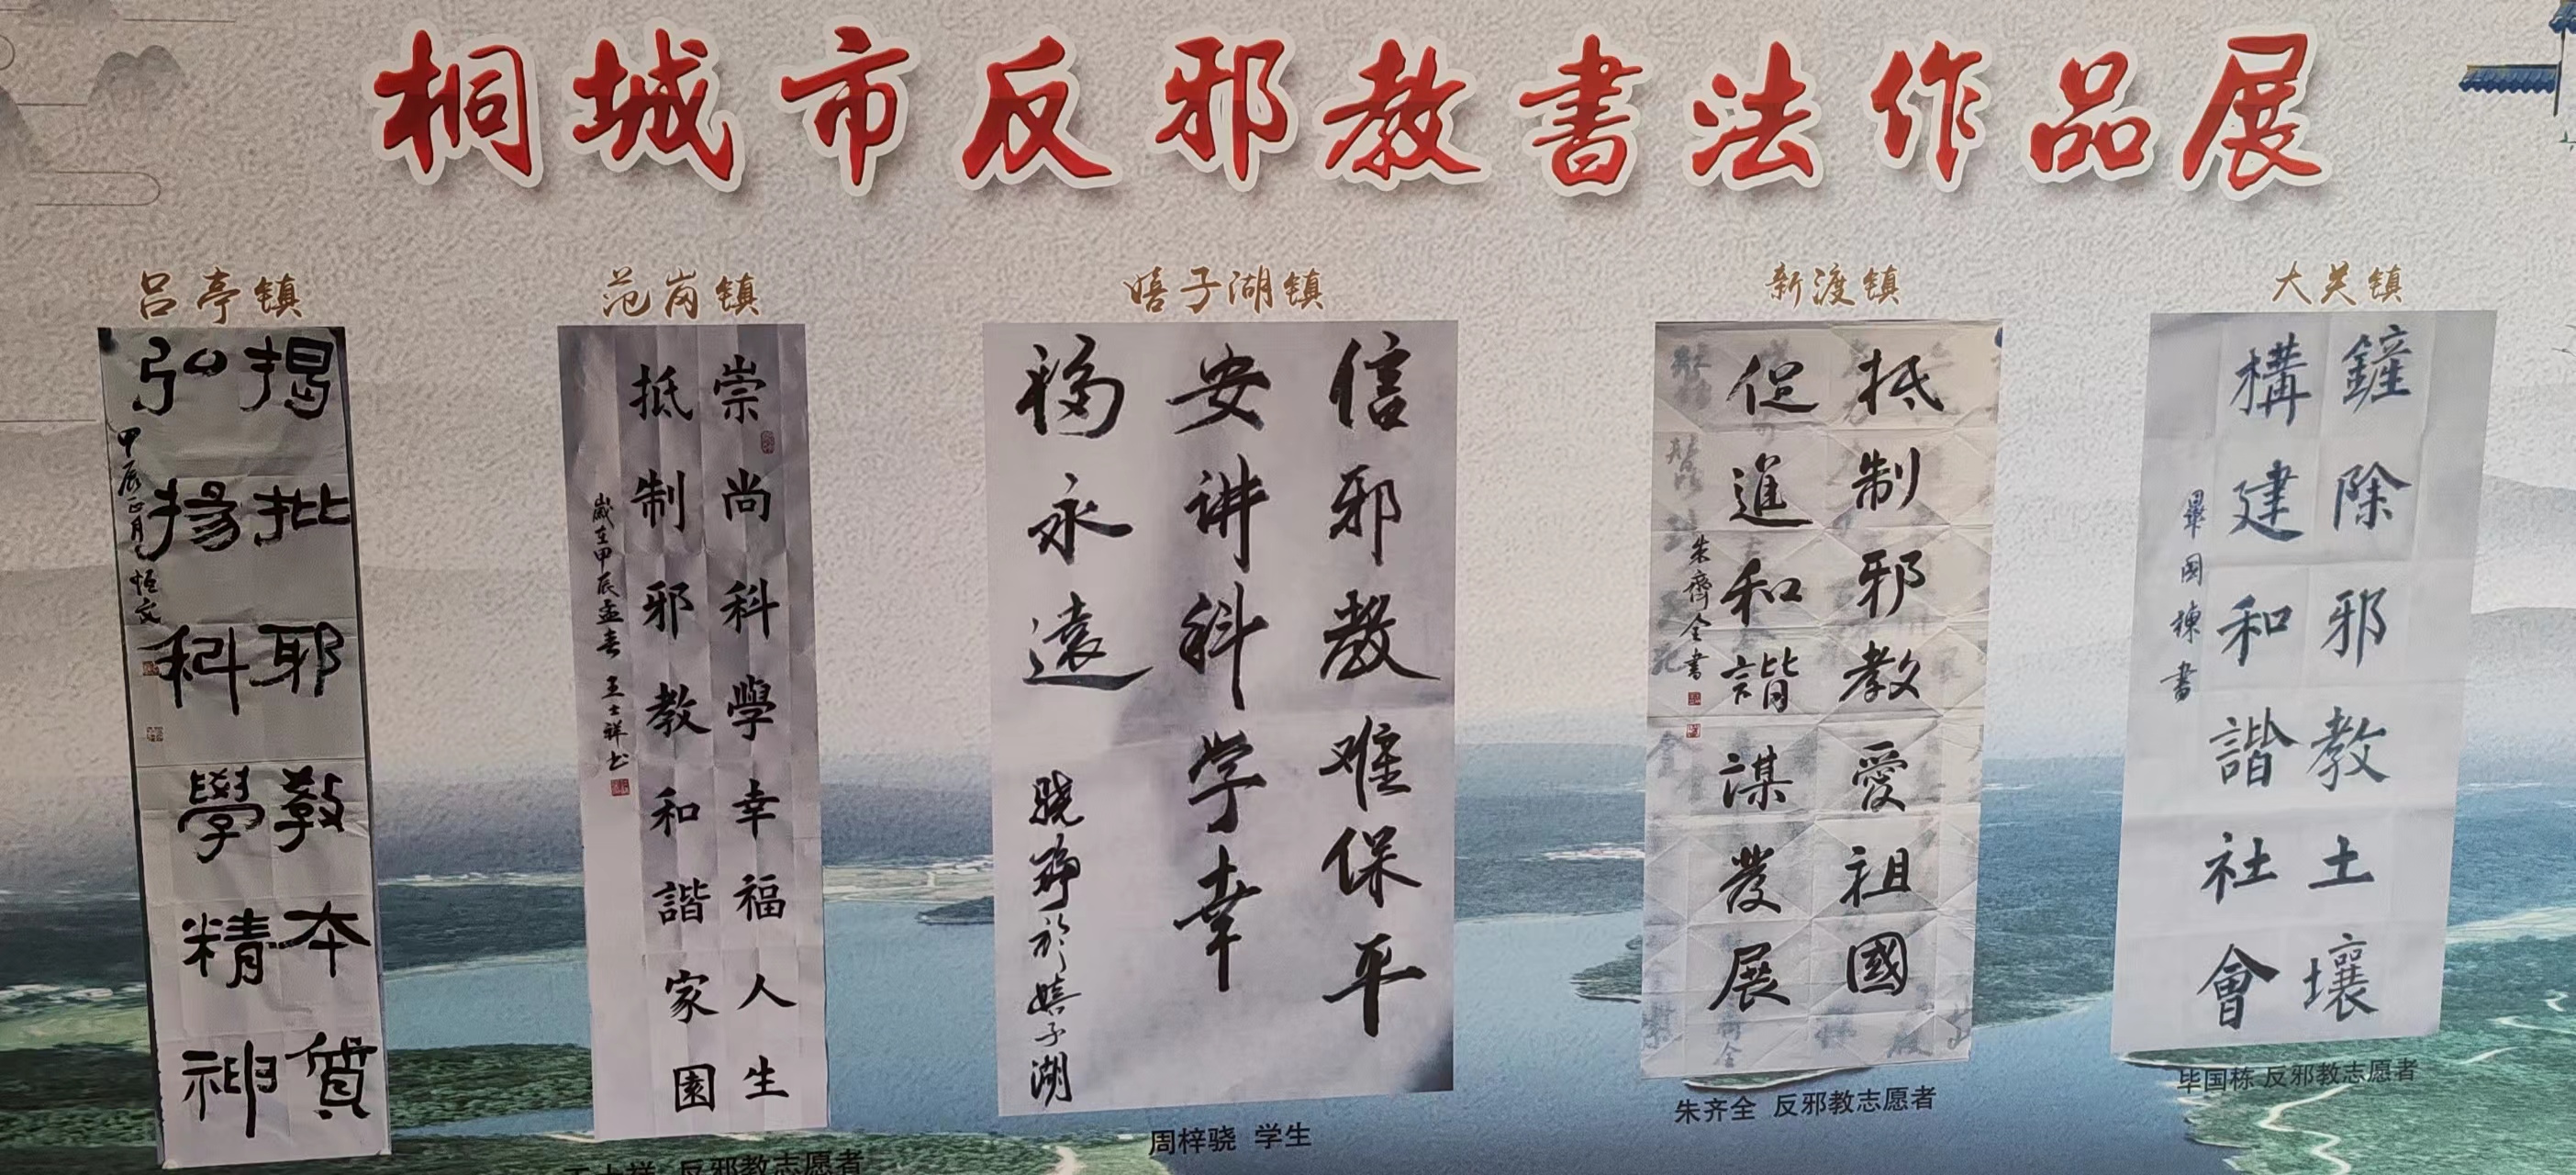 桐城市反邪教書法作品展
吕亭镇
揭批邪教本質
弘揚科學精神
甲辰正月
恒文
范岗镇
崇尚科學幸福人生
抵制邪教和諧家園
歲在甲辰孟春 王士祥书
王士祥 反邪教志愿者
嬉子湖镇
信邪教难保平
安讲科学幸
福永遠
骁 於嬉子湖
周梓骁 学生
新渡镇
抵制邪教愛祖國
促進和諧謀發展
朱齊全書
朱齐全 反邪教志愿者
大关镇
鏟除邪教土壤
構建和諧社會
畢國棟書
毕国栋 反邪教志愿者